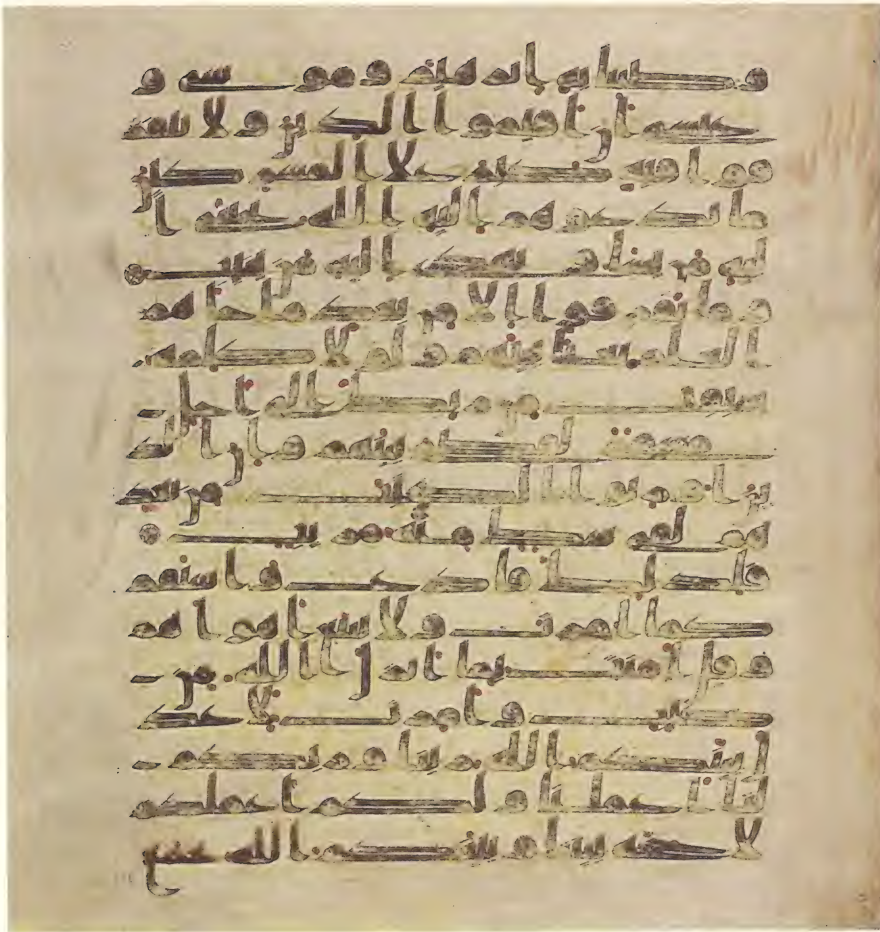 وصينا به ابرهيم وموسى و
عيسى ان اقيموا الدين ولا تتفر
قوا فيه كبر على المشركين
ما تدعوهم اليه الله يجتبي ا
ليه من يشا ويهدي اليه من ينيب
وما تفرقوا الا من بعد ما جاهم
العلم بغيا بينهم ولولا كلمة
سبقت من ربك الى اجل
مسمى لقضي بينهم وان الذ
ين اورثوا الكتب من بعد
هم لفي شك منه مريب
فلذلك فادع واستقم
كما امرت ولا تتبع اهواهم
وقل امنت بما انزل الله من
كتب وامرت لاعد
ل بينكم الله ربنا وربكم
لنا اعملنا ولكم اعملكم
لا حجة بيننا وبينكم الله يجمع